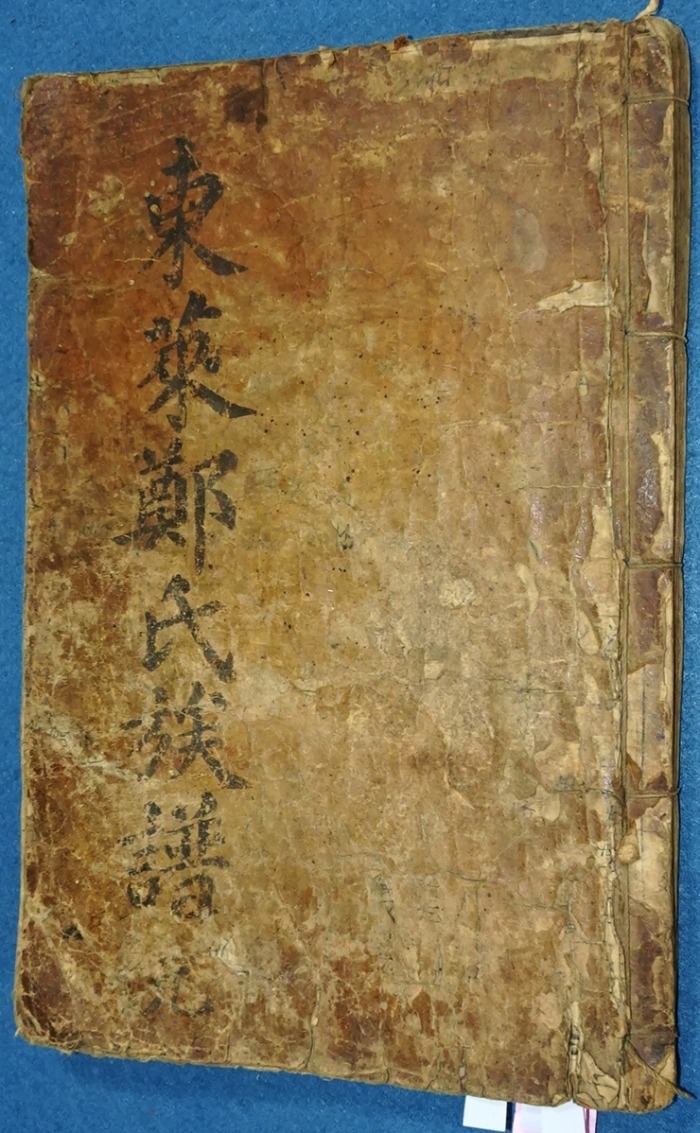 東萊鄭氏族譜 元